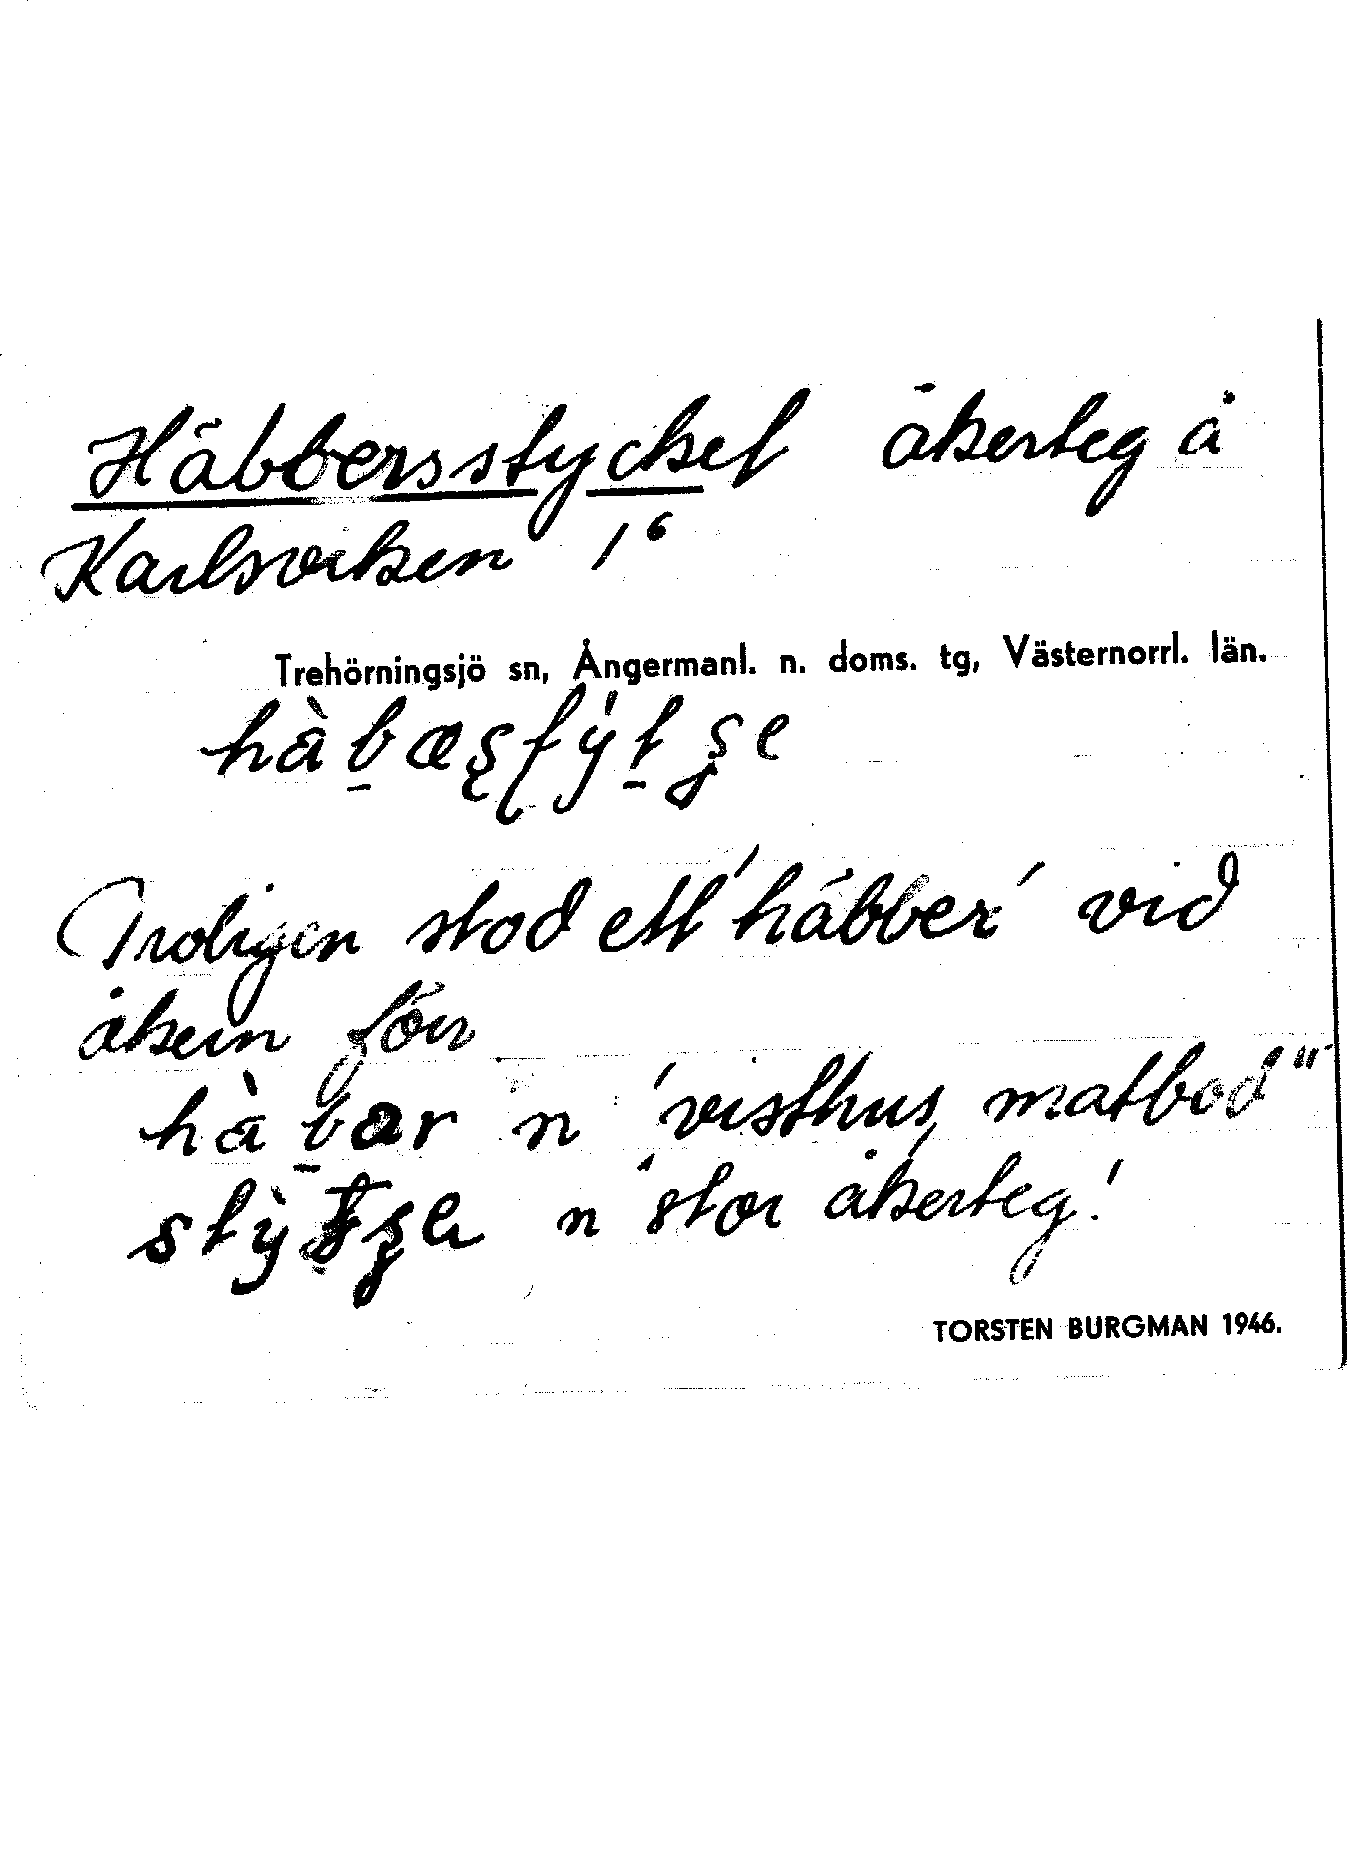 Häbbersstycket åkerteg å
Karlsviken 1⁶
Trehörningsjö sn, Ångermanl. n. doms. tg, Västernorrl. län.
Troligen stod ett 'häbber' vid
åkern förr
n 'visthus, matbod"
n 'stor åkerteg'
TORSTEN BURGMAN 1946.